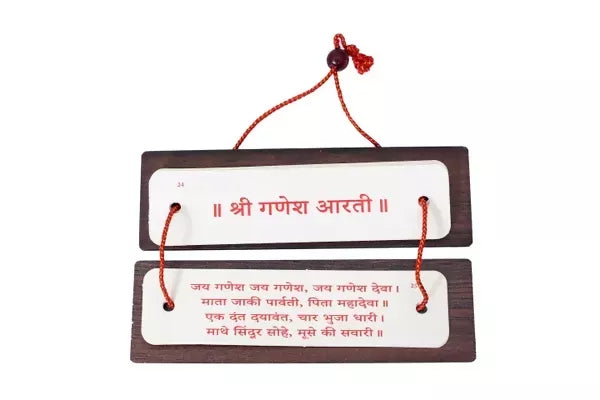 24
॥ श्री गणेश आरती ॥
25
जय गणेश जय गणेश, जय गणेश देवा।
माता जाकी पार्वती, पिता महादेवा॥
एक दंत दयावंत, चार भुजा धारी।
माथे सिंदुर सोहे, मूसे की सवारी॥